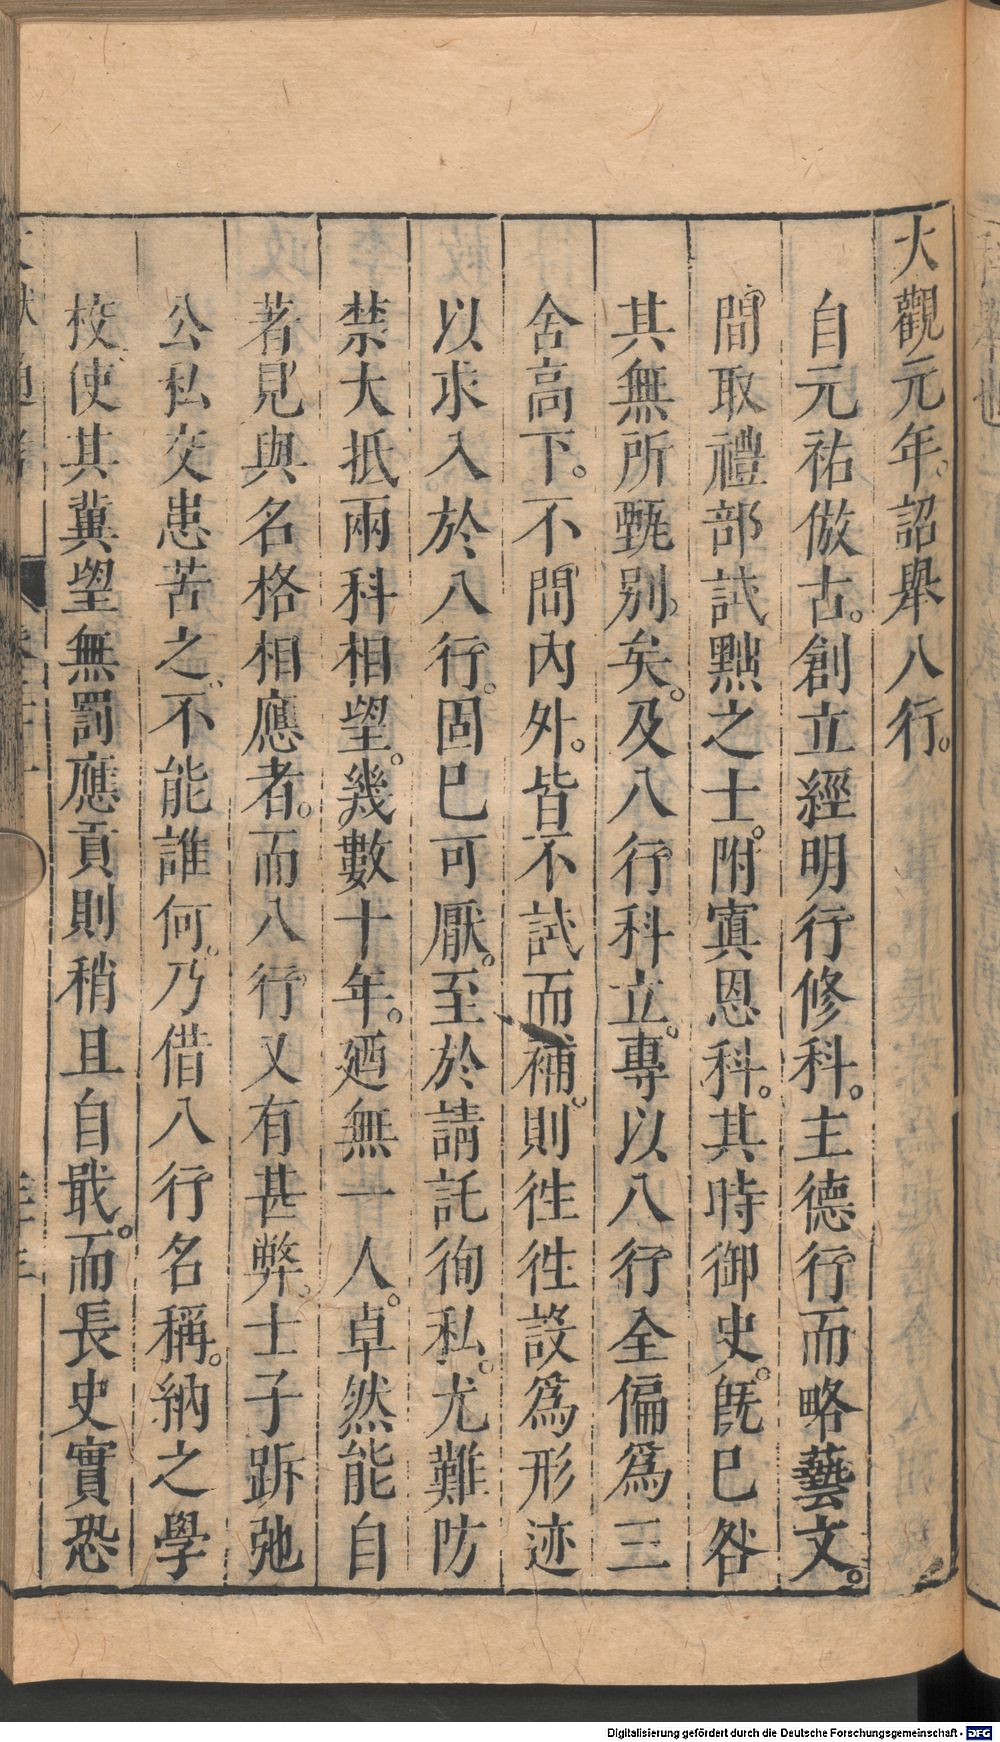 大觀元年。詔舉八行。
自元祐倣古。創立經明行修科。主德行而略藝文。
間取禮部試黜之士。附寘恩科。其時御史。旣已咎
其無所甄别矣。及八行科立。專以八行全偏爲三
舍高下。不問內外。皆不試而補。則徃徃設爲形迹
以求入於八行。固已可厭。至於請託徇私。尤難防
禁大抵兩科相望。幾數十年。廼無一人。卓然能自
著見與名格相應者。而八行又有甚弊。士子跅弛
公私交患苦之。不能誰何。乃借八行名稱。納之學
校使其冀望無罰應貢則稍且自戢。而長史實恐
Digitalisierung gefördert durch die Deutsche Forschungsgemeinschaft - DFG